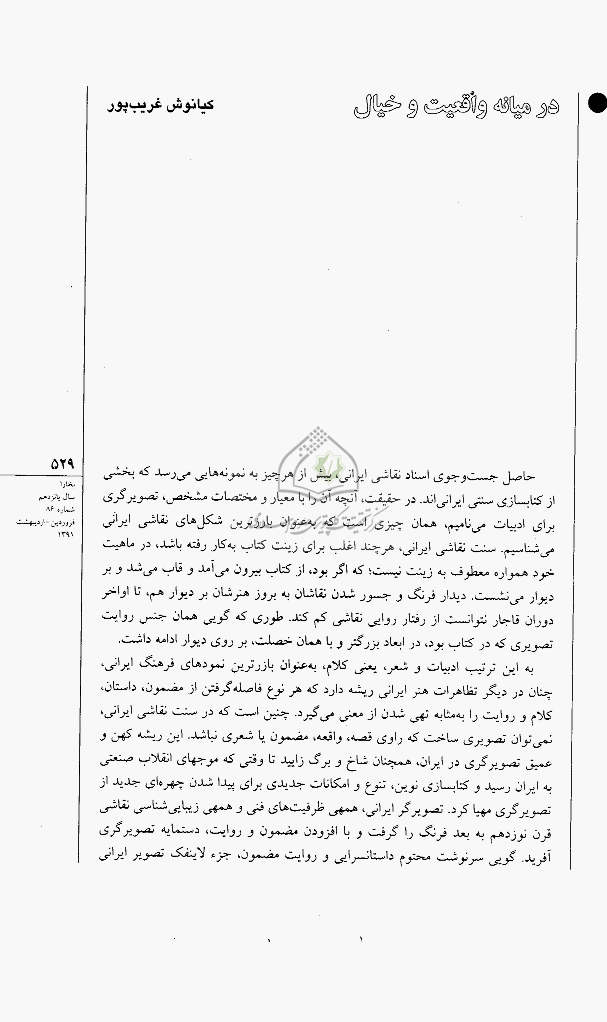 در میانه واقعیت و خیال
کیانوش غریب‌پور
۵۲۹
بخارا
سال پانزدهم
شماره ۸۶
فروردین - اردیبهشت
۱۳۹۱
حاصل جست‌وجوی اسناد نقاشی ایرانی، بیش از هر چیز به نمونه‌هایی می‌رسد که بخشی
از کتابسازی سنتی ایرانی‌اند. در حقیقت، آنچه آن را با معیار و مختصات مشخص، تصویرگری
برای ادبیات می‌نامیم، همان چیزی است که به‌عنوان بارزترین شکل‌های نقاشی ایرانی
می‌شناسیم. سنت نقاشی ایرانی، هرچند اغلب برای زینت کتاب به‌کار رفته باشد، در ماهیت
خود همواره معطوف به زینت نیست؛ که اگر بود، از کتاب بیرون می‌آمد و قاب می‌شد و بر
دیوار می‌نشست. دیدار فرنگ و جسور شدن نقاشان به بروز هنرشان بر دیوار هم، تا اواخر
دوران قاجار نتوانست از رفتار روایی نقاشی کم کند. طوری که گویی همان جنس روایت
تصویری که در کتاب بود، در ابعاد بزرگتر و با همان خصلت، بر روی دیوار ادامه داشت.
به این ترتیب ادبیات و شعر، یعنی کلام، به‌عنوان بازرترین نمودهای فرهنگ ایرانی،
چنان در دیگر تظاهرات هنر ایرانی ریشه دارد که هر نوع فاصله‌گرفتن از مضمون، داستان،
کلام و روایت را به‌مثابه تهی شدن از معنی می‌گیرد. چنین است که در سنت نقاشی ایرانی،
نمی‌توان تصویری ساخت که راوی قصه، واقعه، مضمون یا شعری نباشد. این ریشه کهن و
عمیق تصویرگری در ایران، همچنان شاخ و برگ زایید تا وقتی که موجهای انقلاب صنعتی
به ایران رسید و کتابسازی نوین، تنوع و امکانات جدیدی برای پیدا شدن چهره‌ای جدید از
تصویرگری مهیا کرد. تصویرگر ایرانی، همه‌ی ظرفیت‌های فنی و همه‌ی زیبایی‌شناسی نقاشی
قرن نوزدهم به بعد فرنگ را گرفت و با افزودن مضمون و روایت، دستمایه تصویرگری
آفرید. گویی سرنوشت محتوم داستانسرایی و روایت مضمون، جزء لاینفک تصویر ایرانی